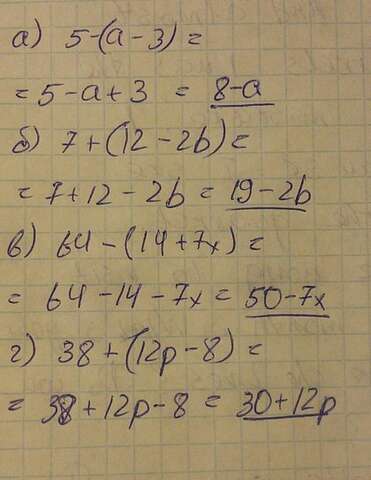 а) 5-(a-3)=
= 5-a+3 = 8-a
б) 7+(12-2b)=
= 7+12-2b = 19-2b
в) 64-(14+7x)=
= 64-14-7x = 50-7x
г) 38+(12p-8)=
= 38+12p-8 = 30+12p